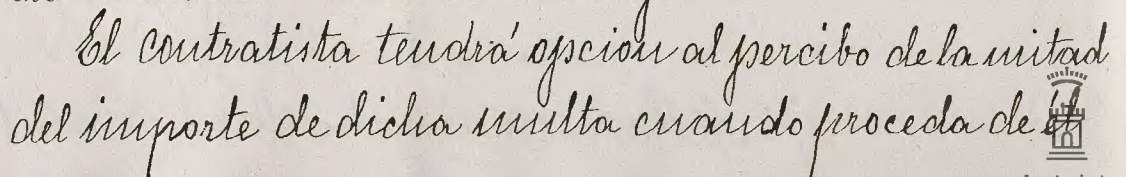 El contratista tendrá opcion al percibo de la mitad
del importe de dicha multa cuando proceda de él